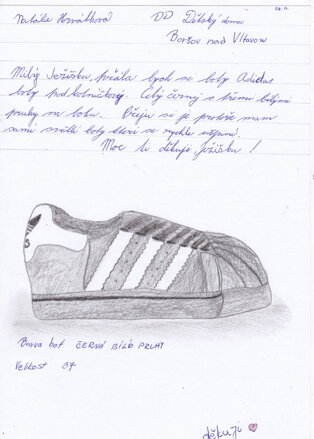 Natálie Horváthová
DD Dětský domov
Boršov nad Vltavou
Milý Ježíšku, přála bych si boty Adidas
boty pod kotníčkový. Celý černý s třemi bílými
pruhy na boku. Přeju si je protože mam
samí světlí boty které se rychle ušpiní.
Moc ti děkuju, ježíšku !
Barva bot ČERNÁ BÍLÉ PRUHY
Velikost 37
děkuji